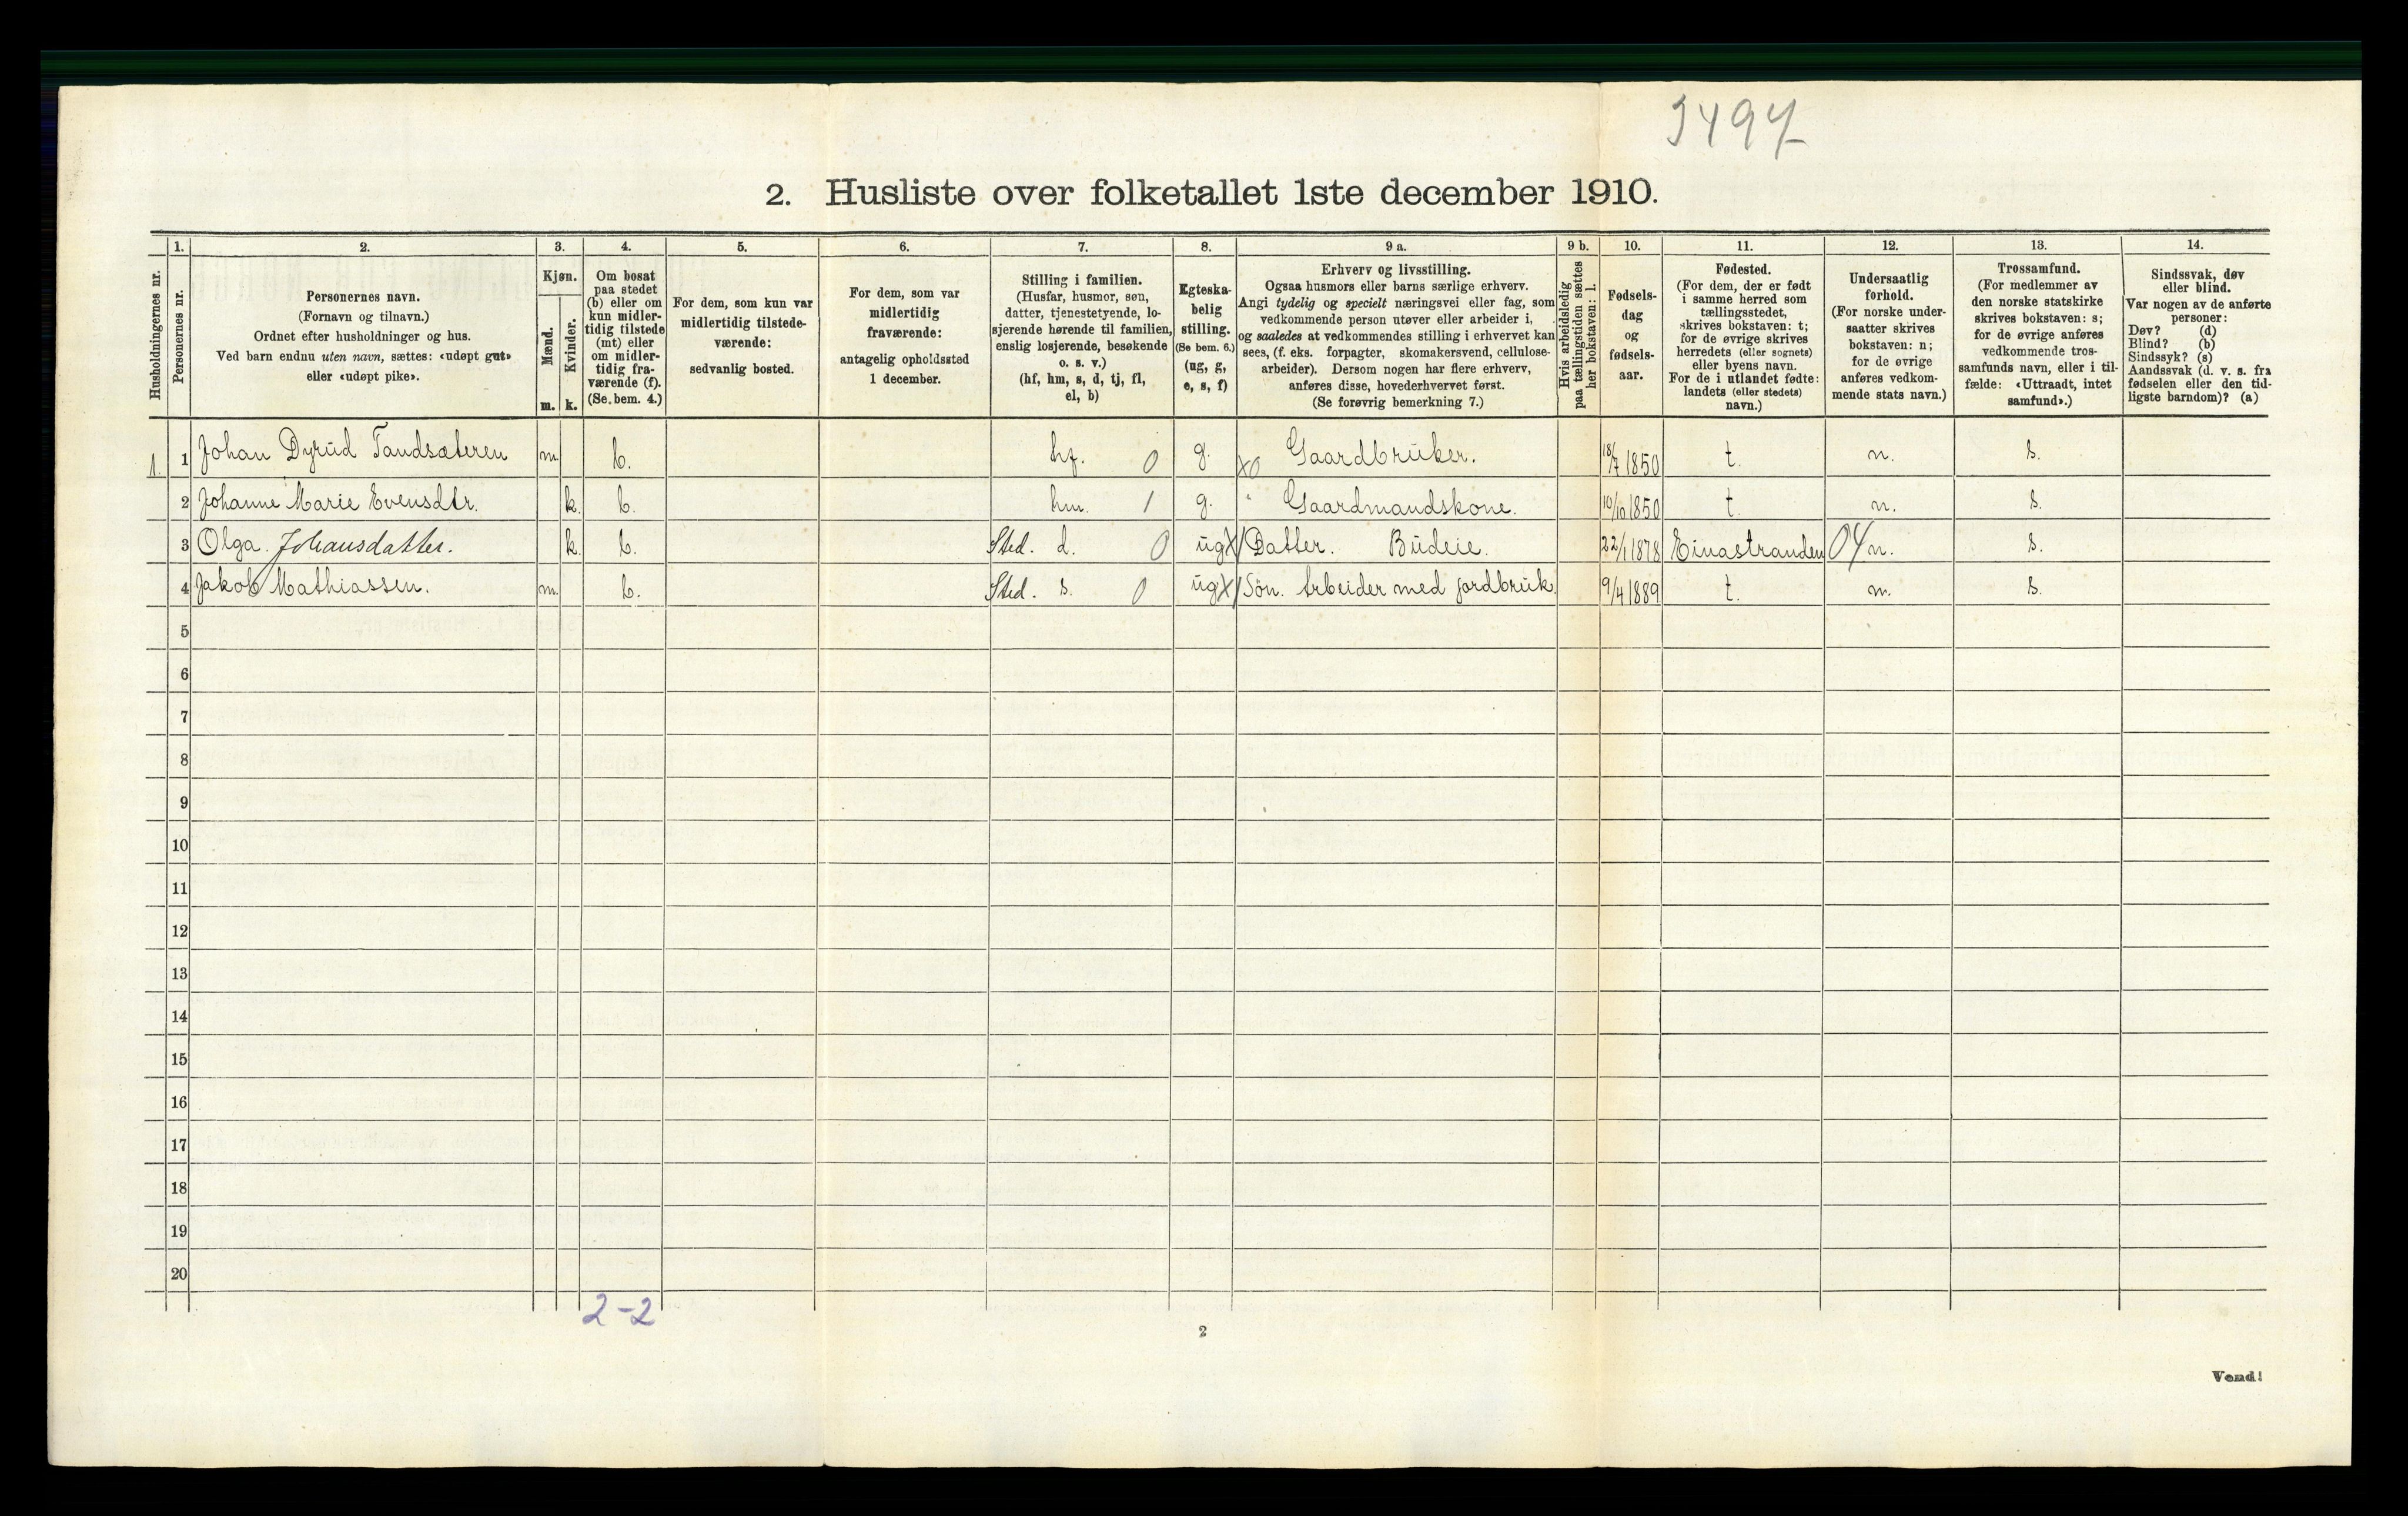 3497
2. Husliste over folketallet 1ste december 1910.
Husholdningernes nr.
1. Personernes nr.
2. Personernes navn.
(Fornavn og tilnavn.)
Ordnet efter husholdninger og hus.
Ved barn endnu uten navn, sættes: «udøpt gut»
eller «udøpt pike».
3. Kjøn.
Mænd. m.
Kvinder. k.
4. Om bosat
paa stedet
(b) eller om
kun midler-
tidig tilstede
(mt) eller
om midler-
tidig fra-
værende (f).
(Se bem. 4.)
5. For dem, som kun var
midlertidig tilstede-
værende:
sedvanlig bosted.
6. For dem, som var
midlertidig
fraværende:
antagelig opholdssted
1 december.
7. Stilling i familien.
(Husfar, husmor, søn,
datter, tjenestetyende, lo-
sjerende hørende til familien,
enslig losjerende, besøkende
o. s. v.)
(hf, hm, s, d, tj, fl,
el, b)
8. Egteska-
belig
stilling.
(Se bem. 6.)
(ug, g,
e, s, f)
9 a. Erhverv og livsstilling.
Ogsaa husmors eller barns særlige erhverv.
Angi tydelig og specielt næringsvei eller fag, som
vedkommende person utøver eller arbeider i,
og saaledes at vedkommendes stilling i erhvervet kan
sees, (f. eks. forpagter, skomakersvend, cellulose-
arbeider). Dersom nogen har flere erhverv,
anføres disse, hovederhvervet først.
(Se forøvrig bemerkning 7.)
9 b. Hvis arbeidsledig
paa tællingstiden sættes
her bokstaven: l.
10. Fødsels-
dag
og
fødsels-
aar.
11. Fødested.
(For dem, der er født
i samme herred som
tællingsstedet,
skrives bokstaven: t;
for de øvrige skrives
herredets (eller sognets)
eller byens navn.
For de i utlandet fødte:
landets (eller stedets)
navn.)
12. Undersaatlig
forhold.
(For norske under-
saatter skrives
bokstaven: n;
for de øvrige
anføres vedkom-
mende stats navn.)
13. Trossamfund.
(For medlemmer av
den norske statskirke
skrives bokstaven: s;
for de øvrige anføres
vedkommende tros-
samfunds navn, eller i til-
fælde: «Uttraadt, intet
samfund».)
14. Sindssvak, døv
eller blind.
Var nogen av de anførte
personer:
Døv? (d)
Blind? (b)
Sindssyk? (s)
Aandssvak (d. v. s. fra
fødselen eller den tid-
ligste barndom)? (a)
1. 1 Johan Dyrud Tandsæteren m. b. hf. 0 g. X0 Gaardbruker. 18/7 1850 t. n. s.
2 Johanne Marie Evensdtr. k. b. hm. 1 g. Gaardmandskone. 10/10 1850 t. n. s.
3 Olga. Johansdatter. k. b. Sted. d. 0 ug X/ Datter. Budeie. 22/1 1878 Einastranden 04 n. s.
4 Jakob Mathiassen. m. b. Sted. s. 0 ug X/ Søn. Arbeider med jordbruk. 9/4 1889 t. n. s.
5
6
7
8
9
10
11
12
13
14
15
16
17
18
19
20
2-2
2
Vend!